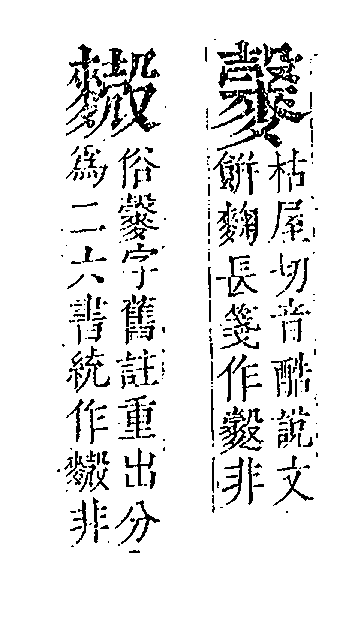 枯屋切音酷說文
餅麴長箋作非
俗字舊註重出分
爲二六書統作非